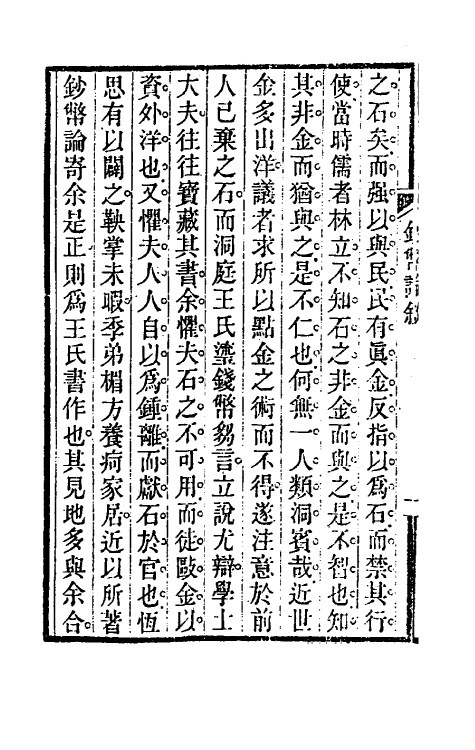 之石矣而强以與民民有眞金反指以爲石而禁其行
使當時儒者林立不知石之非金而與之是不智也知
其非金而猶與之是不仁也何無一人類洞賓哉近世
金多出洋議者求所以點金之術而不得遂注意於前
人已棄之石而洞庭王氏鎏錢幣芻言立說尤辯學士
大夫往往寶藏其書余懼夫石之不可用而徒敺金以
資外洋也又懼夫人人自以爲鍾離而獻石於官也恆
思有以闢之鞅掌未暇季弟楣方養疴家居近以所著
鈔幣論寄余是正則爲王氏書作也其見地多與余合
鈔幣論敘
一